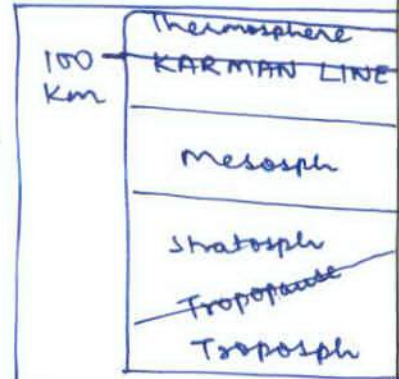 Thermosphere
100 KARMAN LINE
Km
Mesosph
Stratosph
Tropopause
Troposph